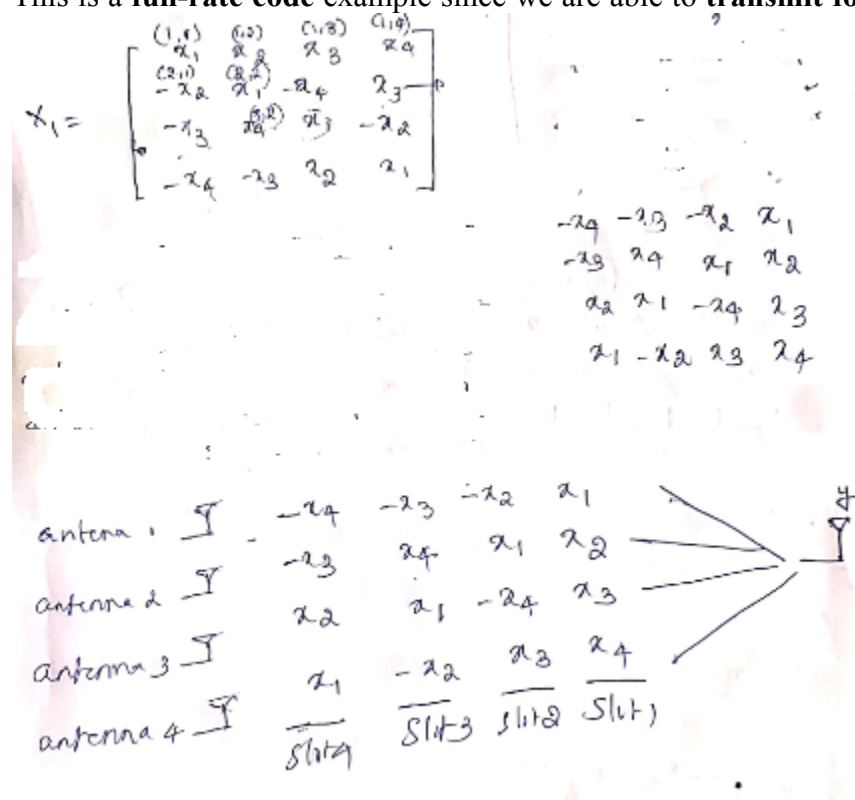 This is a full-rate code example since we are able to transmit fo
(1,1) (1,2) (1,3) (1,4)
x1 x2 x3 x4
(2,1) (2,2)
-x2 x1 -x4 x3
X1 =
(3,2)
-x3 x4 x1 -x2
-x4 -x3 x2 x1
-x4 -x3 -x2 x1
-x3 x4 x1 x2
x2 x1 -x4 x3
x1 -x2 x3 x4
y
antena 1 -x4 -x3 -x2 x1
antenna 2 -x3 x4 x1 x2
antenna 3 x2 x1 -x4 x3
antenna 4 x1 -x2 x3 x4
Slot4 Slot3 slot2 Slot1